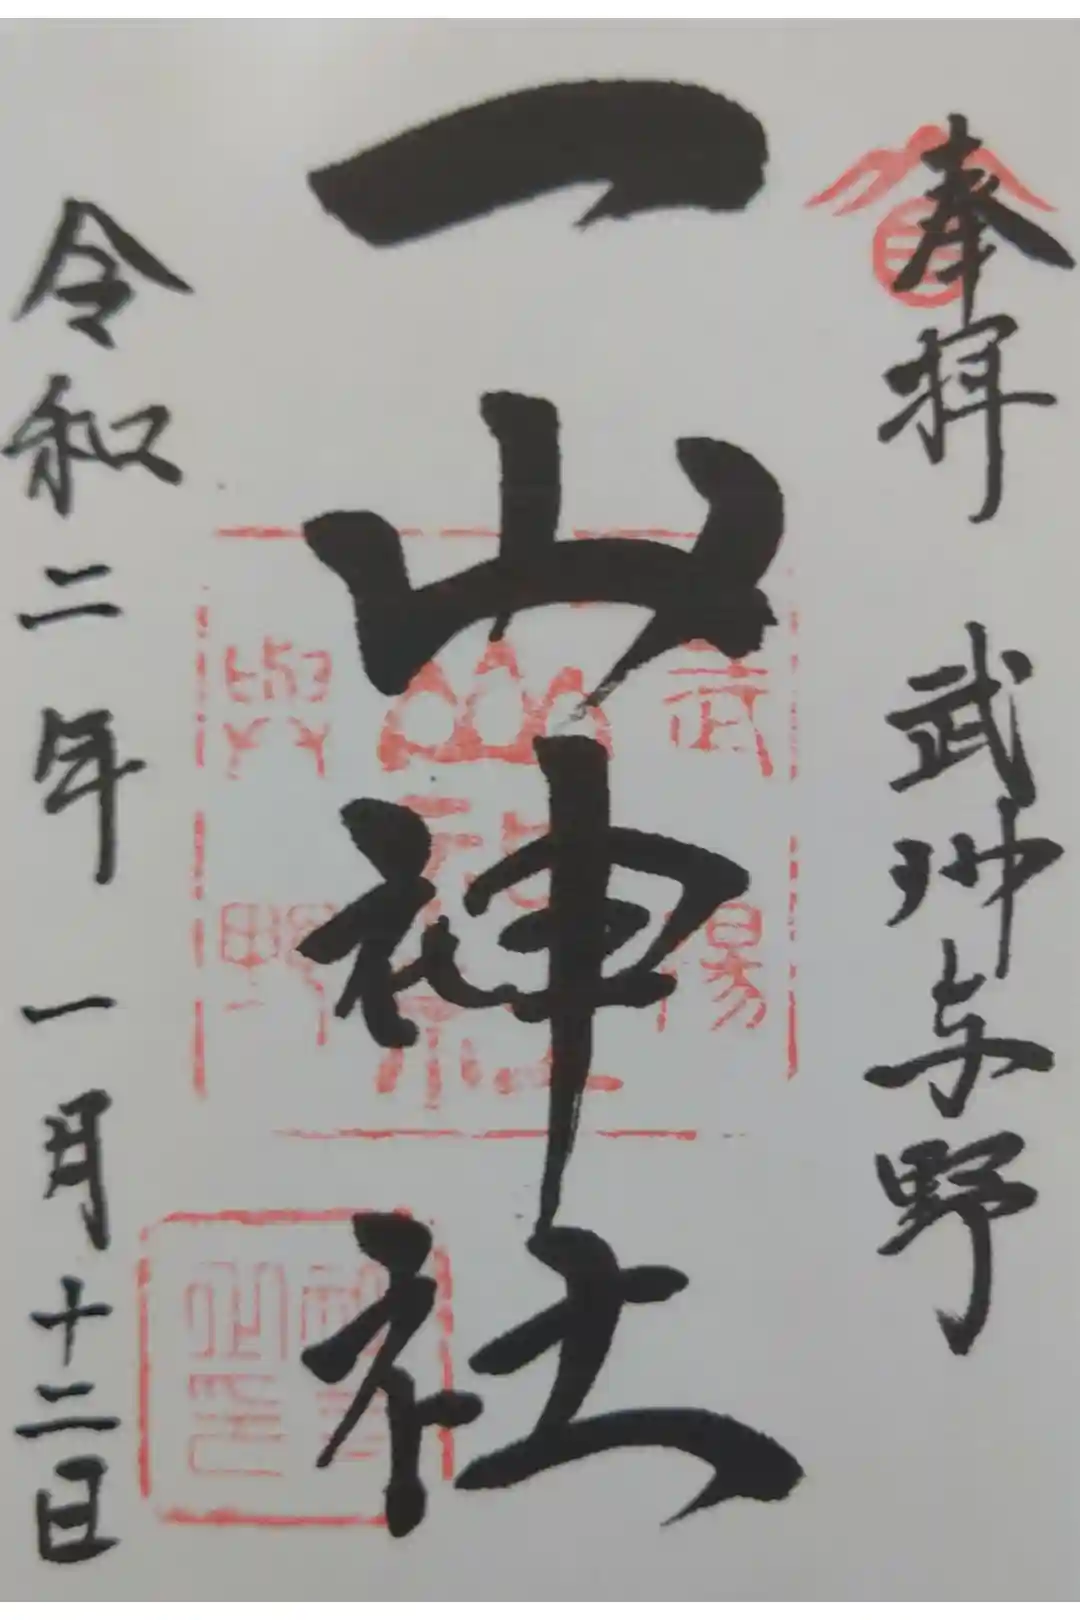 奉拝 武州与野
一山神社
令和二年 一月十二日
武陽
與野